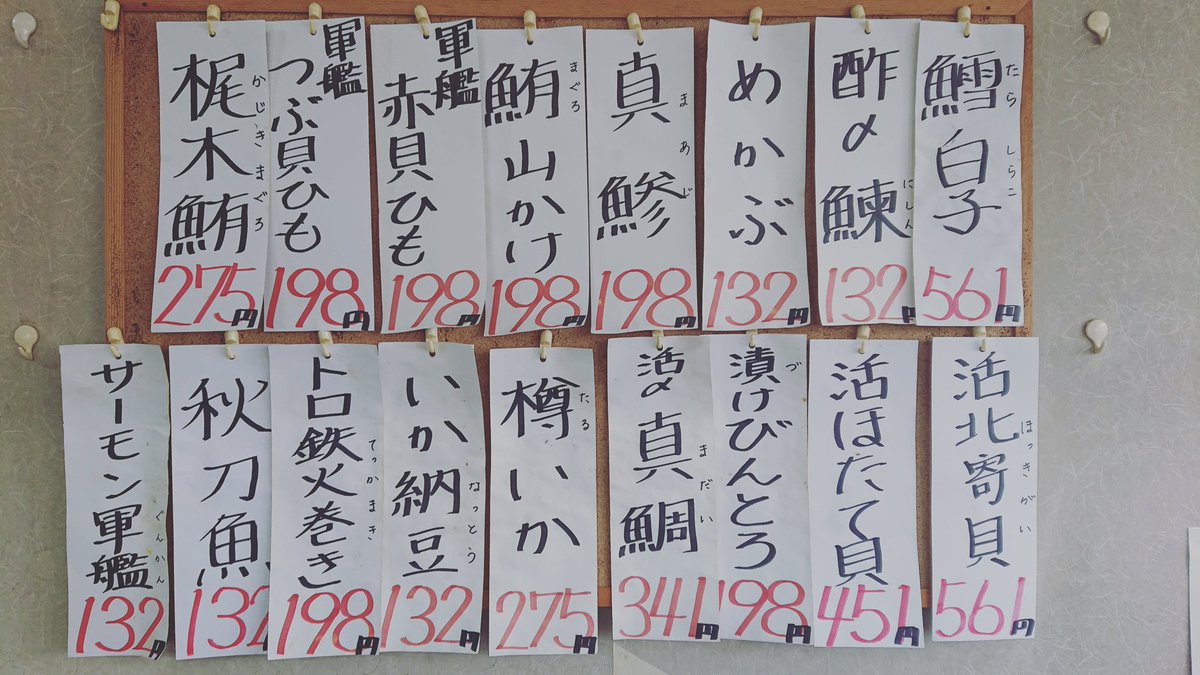 鱈白子
たら
しらこ
561円
酢〆鰊
にしん
132円
めかぶ
132円
真鯵
まあじ
198円
鮪山かけ
まぐろ
198円
軍艦
赤貝ひも
198円
軍艦
つぶ貝ひも
198円
梶木鮪
かじきまぐろ
275円
活北寄貝
ほっきがい
561円
活ほたて貝
451円
漬けびんとろ
づ
198円
活〆真鯛
まだい
341円
樽いか
たる
275円
いか納豆
なっとう
132円
トロ鉄火巻き
てっかまき
198円
秋刀魚
132
サーモン軍艦
ぐんかん
132円